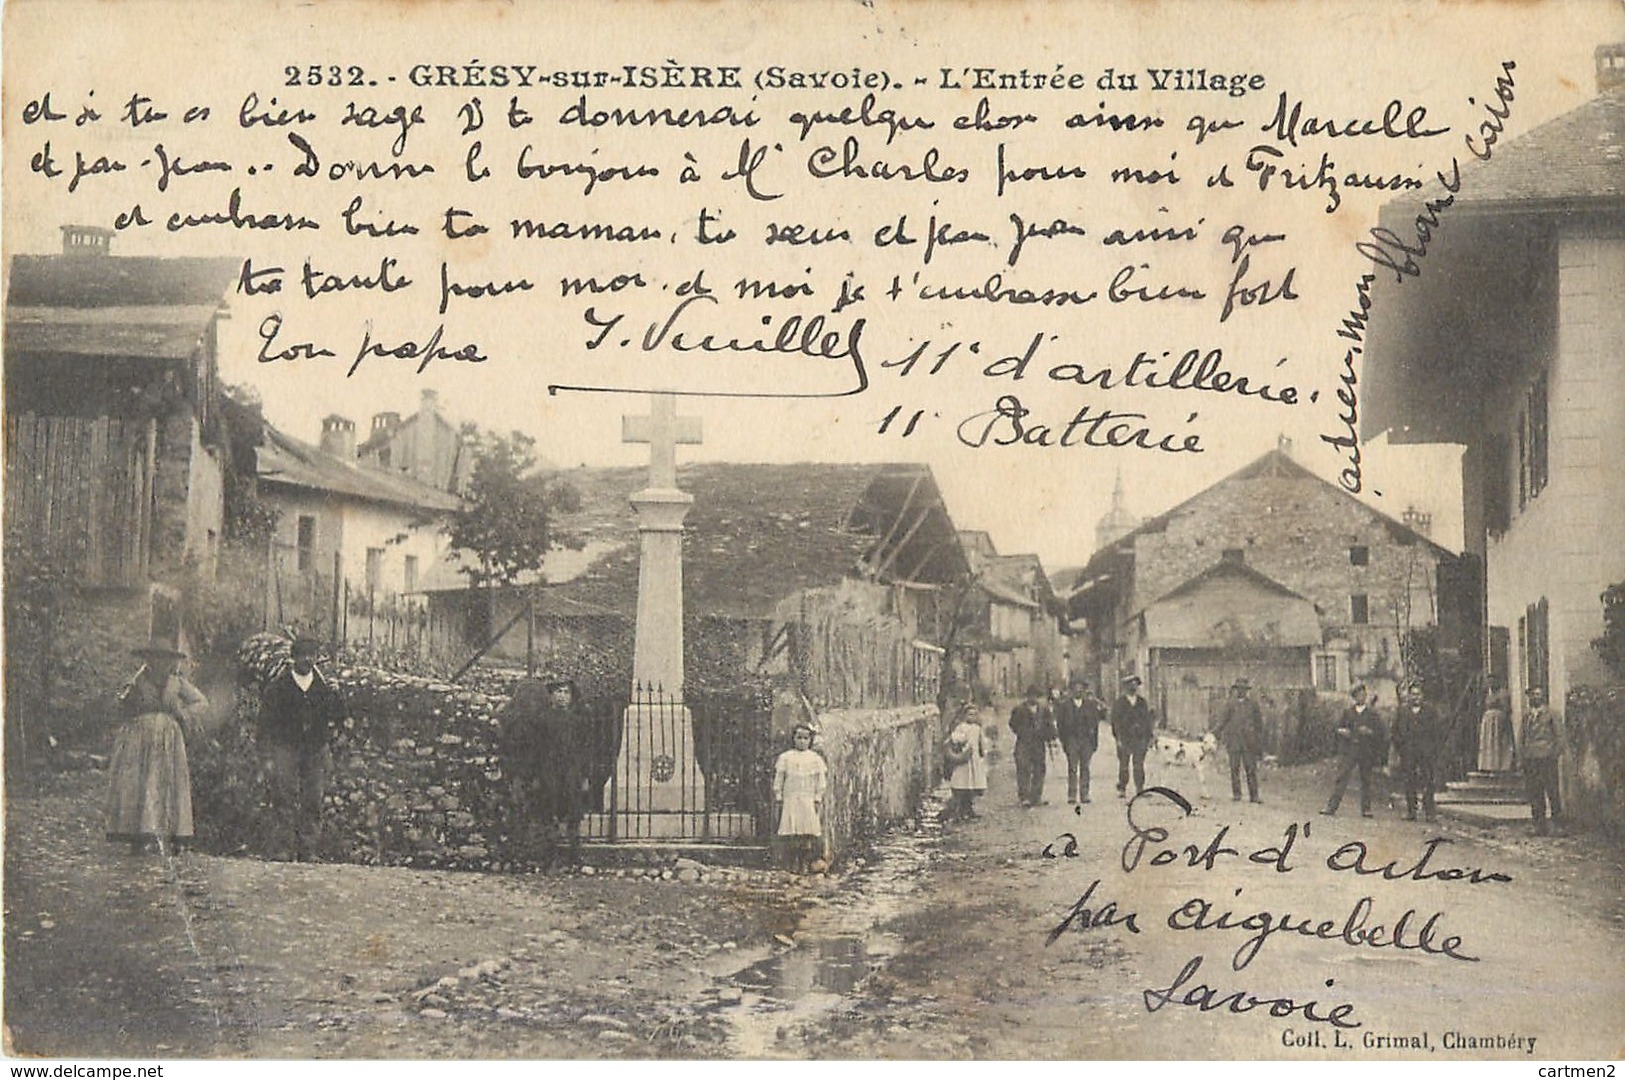 2532. - GRÉSY-sur-ISÈRE (Savoie). - L'Entrée du Village
et si tu es bien sage J te donnerai quelque chose ainsi que Marcelle
et jean-Jean .. Donne le bonjour à Mr Charles pour moi et Fritz aussi
et embrasse bien ta maman, ta sœur et jean Jean ainsi que
ta tante pour moi. et moi je t'embrasse bien fort
Ton papa J. Veuillet 11e d'artillerie.
11 Batterie
adieu, mon
blanc caion
a Fort d'Aiton
par aiguebelle
Savoie
Coll. L. Grimal, Chambéry
delcampe.net
cartmen2